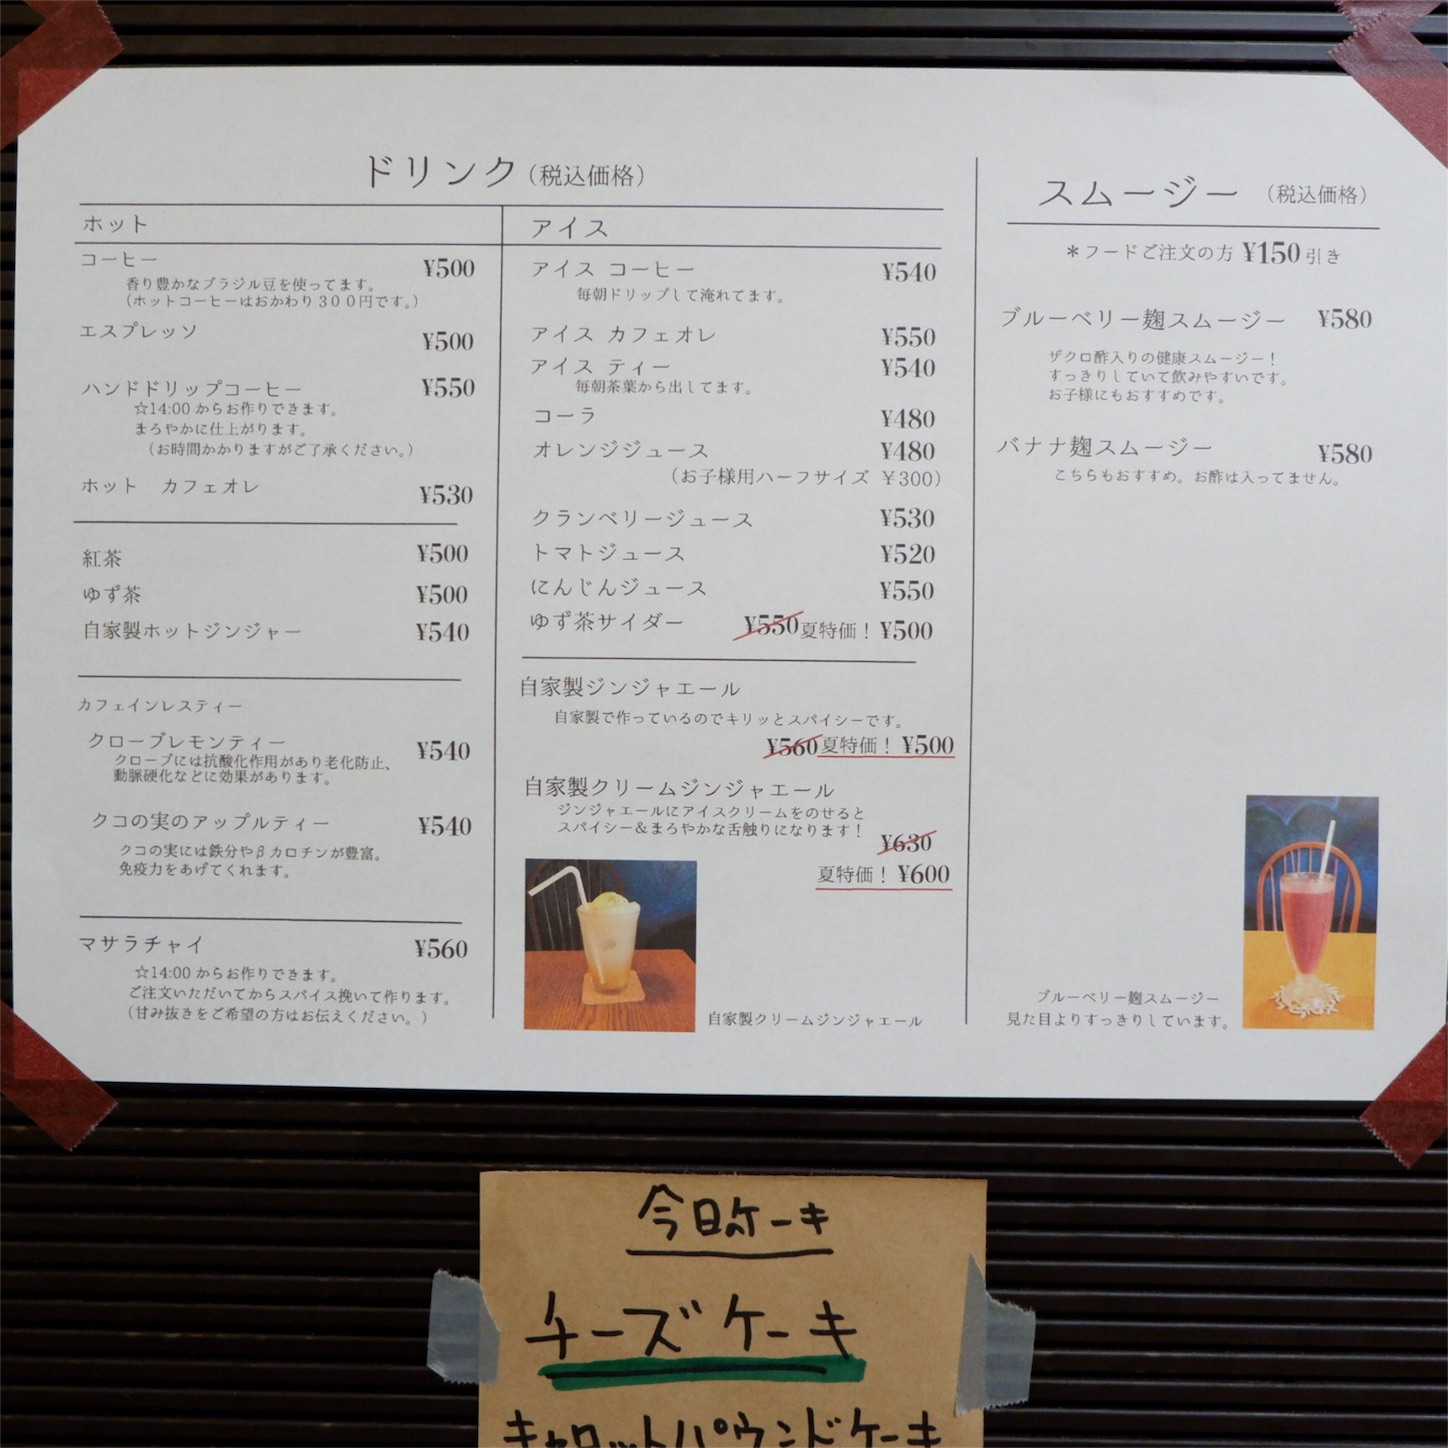 ドリンク（税込価格）
ホット
コーヒー ¥500
香り豊かなブラジル豆を使ってます。
（ホットコーヒーはおかわり３００円です。）
エスプレッソ ¥500
ハンドドリップコーヒー ¥550
☆14:00 からお作りできます。
まろやかに仕上がります。
（お時間かかりますがご了承ください。）
ホット　カフェオレ ¥530
紅茶 ¥500
ゆず茶 ¥500
自家製ホットジンジャー ¥540
カフェインレスティー
クローブレモンティー ¥540
クローブには抗酸化作用があり老化防止、
動脈硬化などに効果があります。
クコの実のアップルティー ¥540
クコの実には鉄分やβカロチンが豊富。
免疫力をあげてくれます。
マサラチャイ ¥560
☆14:00 からお作りできます。
ご注文いただいてからスパイス挽いて作ります。
（甘み抜きをご希望の方はお伝えください。）
アイス
アイス コーヒー ¥540
毎朝ドリップして淹れてます。
アイス カフェオレ ¥550
アイス ティー ¥540
毎朝茶葉から出してます。
コーラ ¥480
オレンジジュース ¥480
（お子様用ハーフサイズ ￥300）
クランベリージュース ¥530
トマトジュース ¥520
にんじんジュース ¥550
ゆず茶サイダー ¥550夏特価！¥500
自家製ジンジャエール
自家製で作っているのでキリッとスパイシーです。
¥560夏特価！¥500
自家製クリームジンジャエール
ジンジャエールにアイスクリームをのせると
スパイシー＆まろやかな舌触りになります！
¥630
夏特価！¥600
自家製クリームジンジャエール
スムージー （税込価格）
＊フードご注文の方 ¥150引き
ブルーベリー麹スムージー ¥580
ザクロ酢入りの健康スムージー！
すっきりしていて飲みやすいです。
お子様にもおすすめです。
バナナ麹スムージー ¥580
こちらもおすすめ。お酢は入ってません。
ブルーベリー麹スムージー
見た目よりすっきりしています。
今日のケーキ
チーズケーキ
キャロットパウンドケーキ